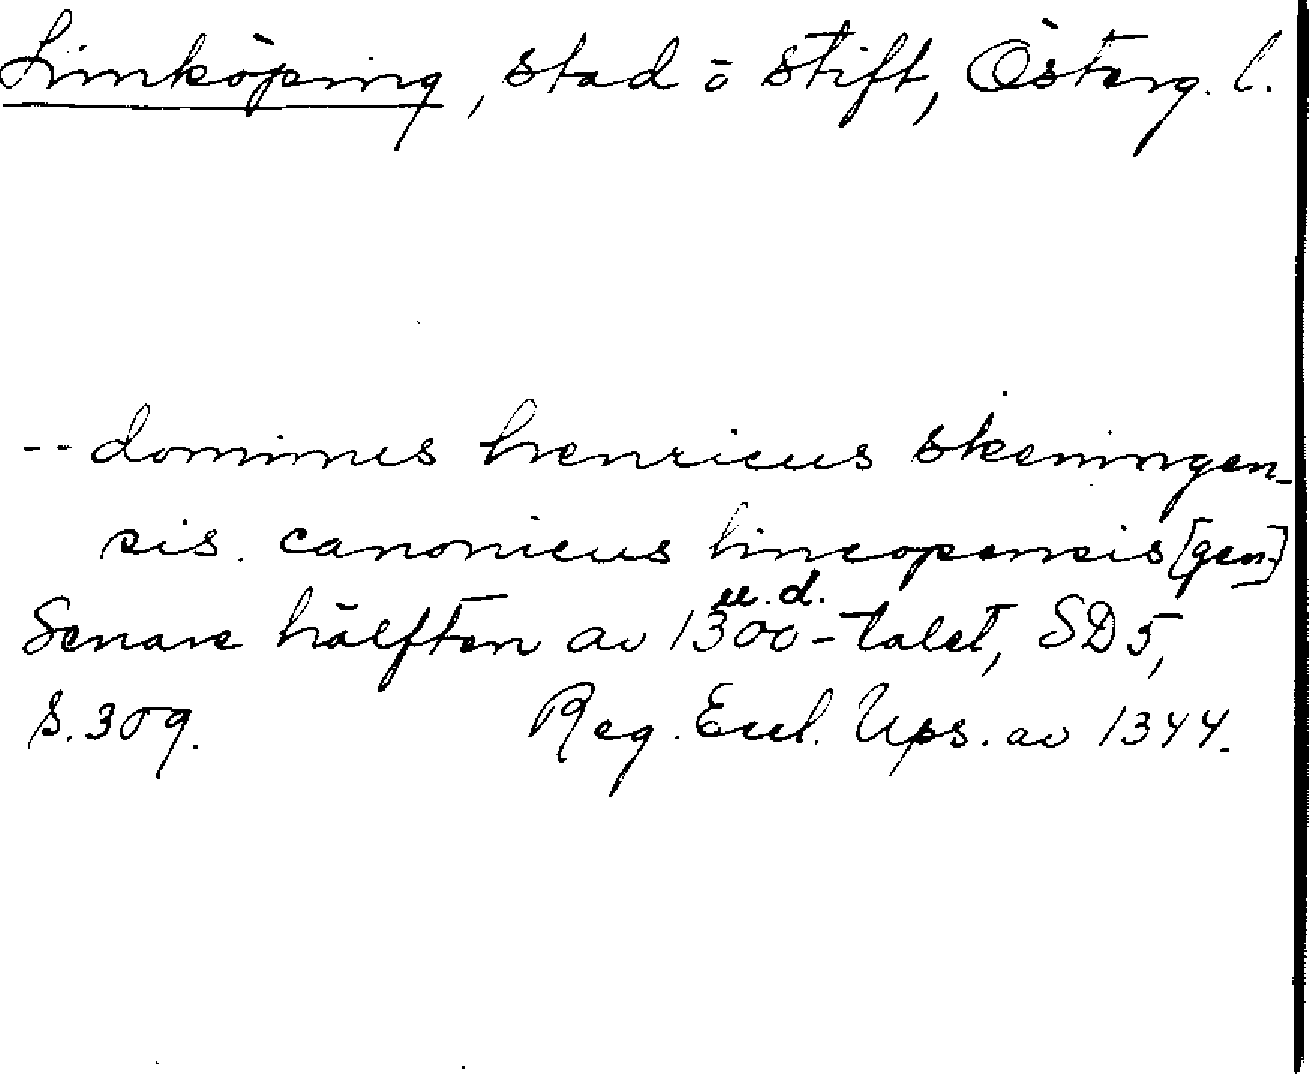 Linköping, stad o stift, Österg. l.
-- dominus henricus skeningen-
sis. canonicus lincopensis [gen.]
u. d.
Senare hälften av 1300-talet, SD 5,
s. 309. Reg. Eccl. Ups. av 1344.